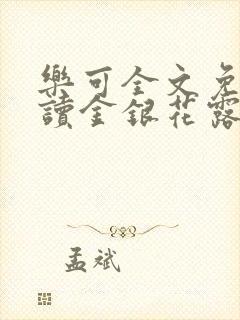 樂可全文免
讀金銀花露
孟斌